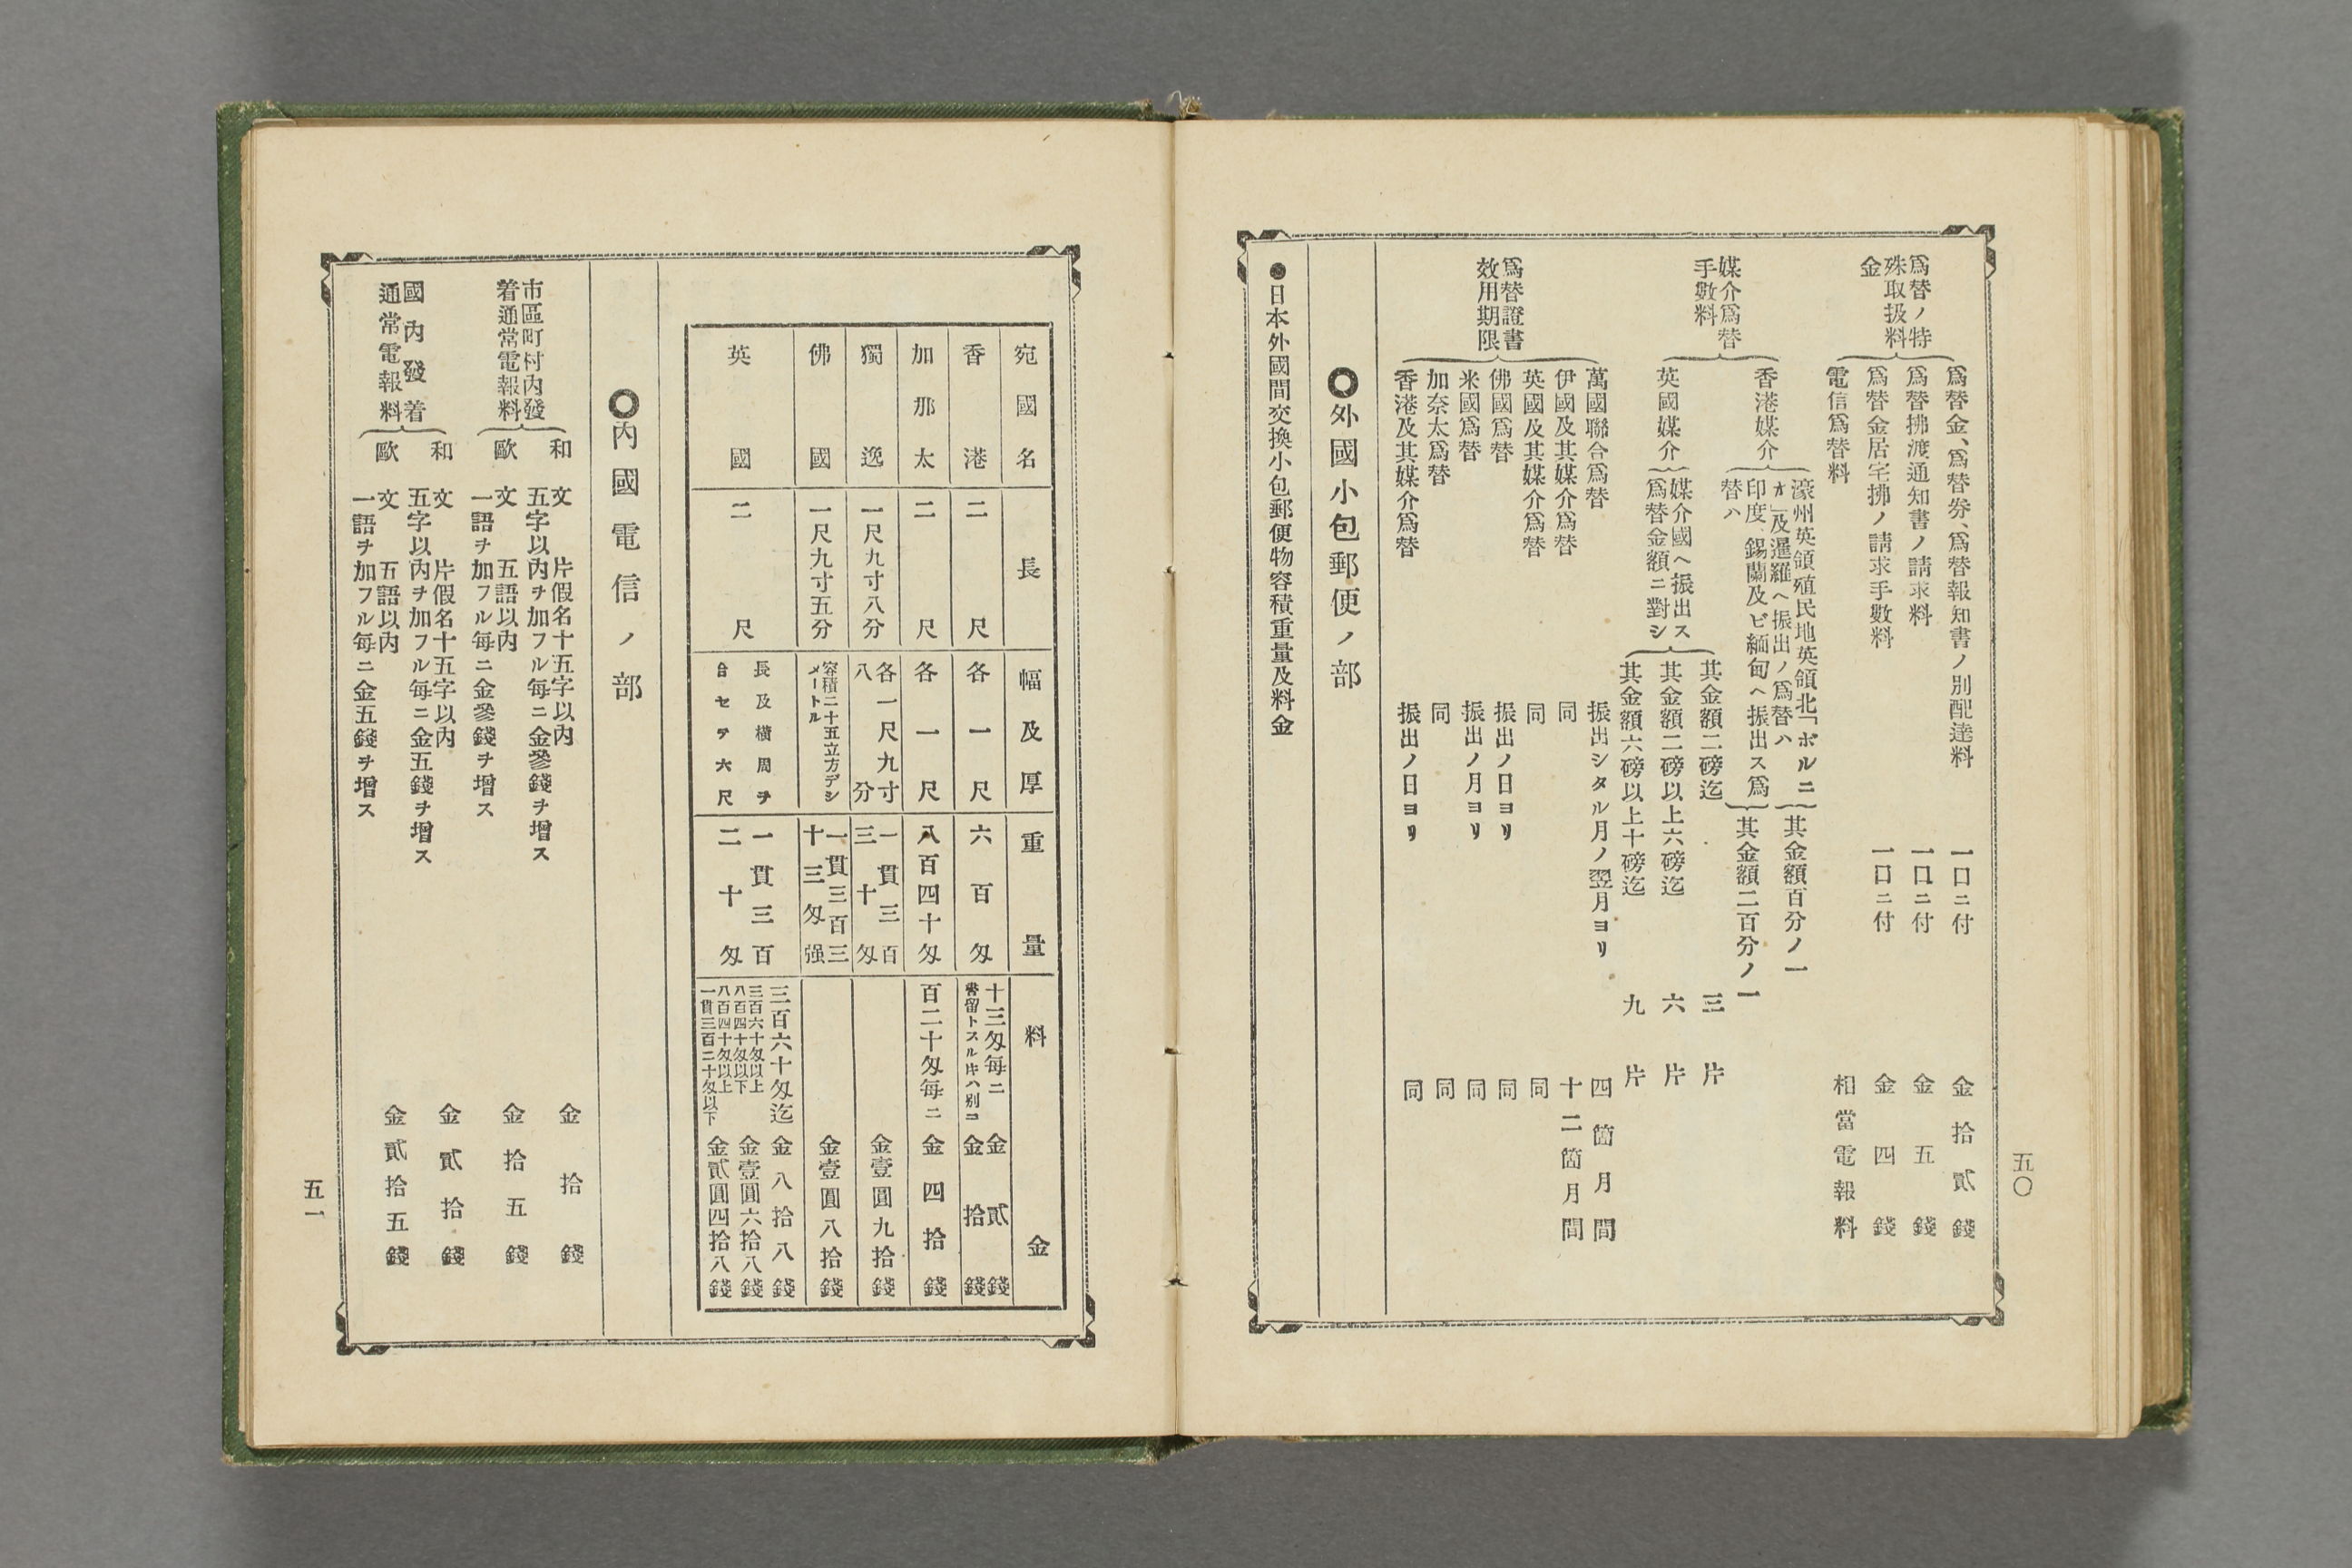 五〇
爲替ノ特
殊取扱料
金
爲替金、爲替券、爲替報知書ノ別配達料 一口ニ付 金拾貳錢
爲替拂渡通知書ノ請求料 一口ニ付 金五錢
爲替金居宅拂ノ請求手數料 一口ニ付 金四錢
電信爲替料 相當電報料
媒介爲替
手數料
香港媒介
濠州英領殖民地英領北「ボルニ
オ」及暹羅ヘ振出ノ爲替ハ
其金額百分ノ一
印度、錫蘭及ビ緬甸ヘ振出ス爲
替ハ
其金額二百分ノ一
英國媒介
媒介國ヘ振出ス
爲替金額ニ對シ
其金額二磅迄 三片
其金額二磅以上六磅迄 六片
其金額六磅以上十磅迄 九片
爲替證書
效用期限
萬國聯合爲替 振出シタル月ノ翌月ヨリ 四箇月間
伊國及其媒介爲替 同 十二箇月間
英國及其媒介爲替 同 同
佛國爲替 振出ノ日ヨリ 同
米國爲替 振出ノ月ヨリ 同
加奈太爲替 同 同
香港及其媒介爲替 振出ノ日ヨリ 同
◯外國小包郵便ノ部
●日本外國間交換小包郵便物容積重量及料金
宛國名 長 幅及厚 重量 料金
香港 二尺 各一尺 六百匁
十三匁每ニ 金貳錢
書留トスル片ハ別ニ 金拾錢
加那太 二尺 各一尺 八百四十匁 百二十匁每ニ 金四拾錢
獨逸 一尺九寸八分
各一尺九寸
八分
一貫三百
三十匁
金壹圓九拾錢
佛國 一尺九寸五分
容積二十五立方デシ
メートル
一貫三百三
十三匁强
金壹圓八拾錢
英國 二尺
長及橫周ヲ
合セヲ六尺
一貫三百
二十匁
三百六十匁迄 金八拾八錢
三百六十匁以上
八百四十匁以下
金壹圓六拾八錢
八百四十匁以上
一貫三百二十匁以下
金貳圓四拾八錢
◯內國電信ノ部
市區町村內發
着通常電報料
和文 片假名十五字以內 金拾錢
五字以內ヲ加フル每ニ金參錢ヲ增ス
歐文 五語以內 金拾五錢
一語ヲ加フル每ニ金參錢ヲ增ス
國內發着
通常電報料
和文 片假名十五字以內 金貳拾錢
五字以內ヲ加フル每ニ金五錢ヲ增ス
歐文 五語以內 金貳拾五錢
一語ヲ加フル每ニ金五錢ヲ增ス
五一